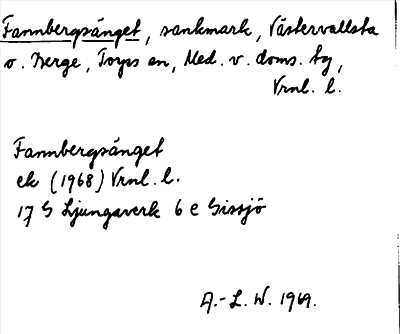 Fannbergsänget, sankmark, Västervallsta
o. Berge, Torps sn, Med. v. doms. bg,
Vrnl. l.
Fannbergsänget
ek (1968) Vrnl. l.
17 G Ljungaverk 6 e Gissjö
A.-L. W. 1969.